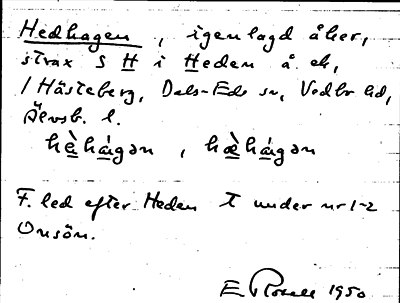 Hedhagen, igenlagd åker,
strax S H i Heden å. ek,
i Hästeberg, Dals-Eds sn, Vedbo hd,
Älvsb. l.
hæ̀hágən, hæ̀hágən
F. led efter Heden T under nr 1-2
Onsön.
E Rosell 1950